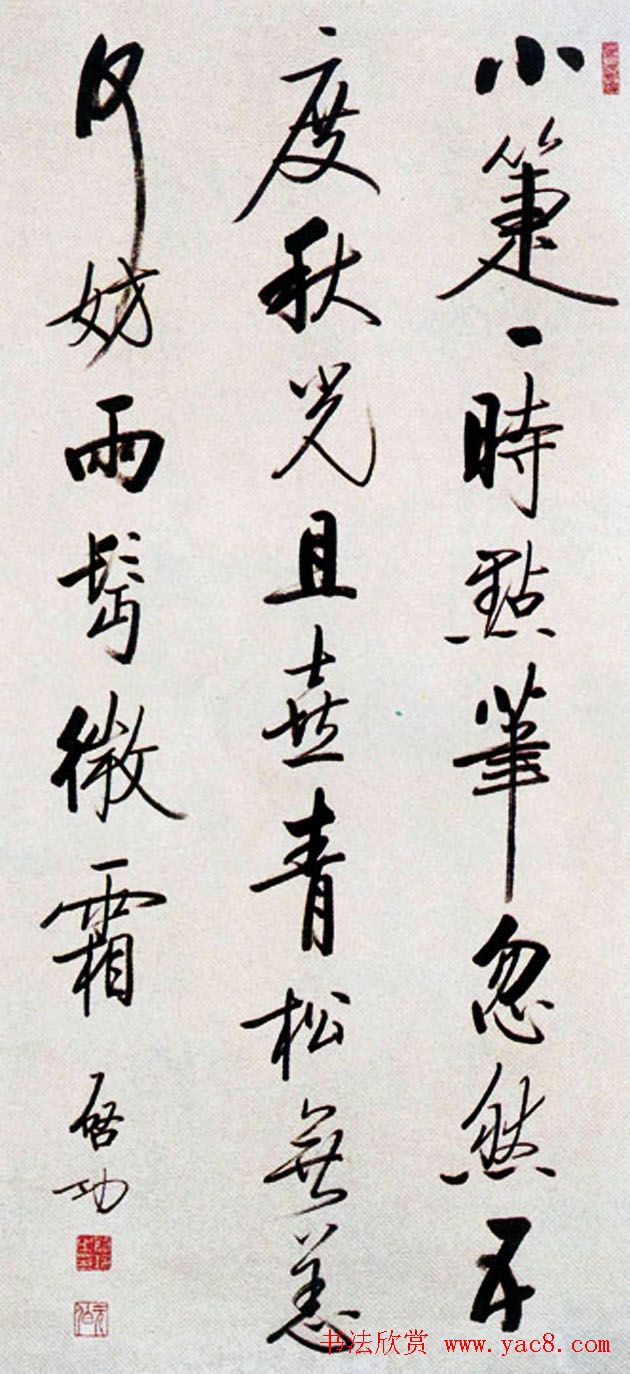 小箑一時點筆忽然五
度秋光且喜青松無恙
何妨兩鬢微霜
启功
书法欣赏 www.yac8.com